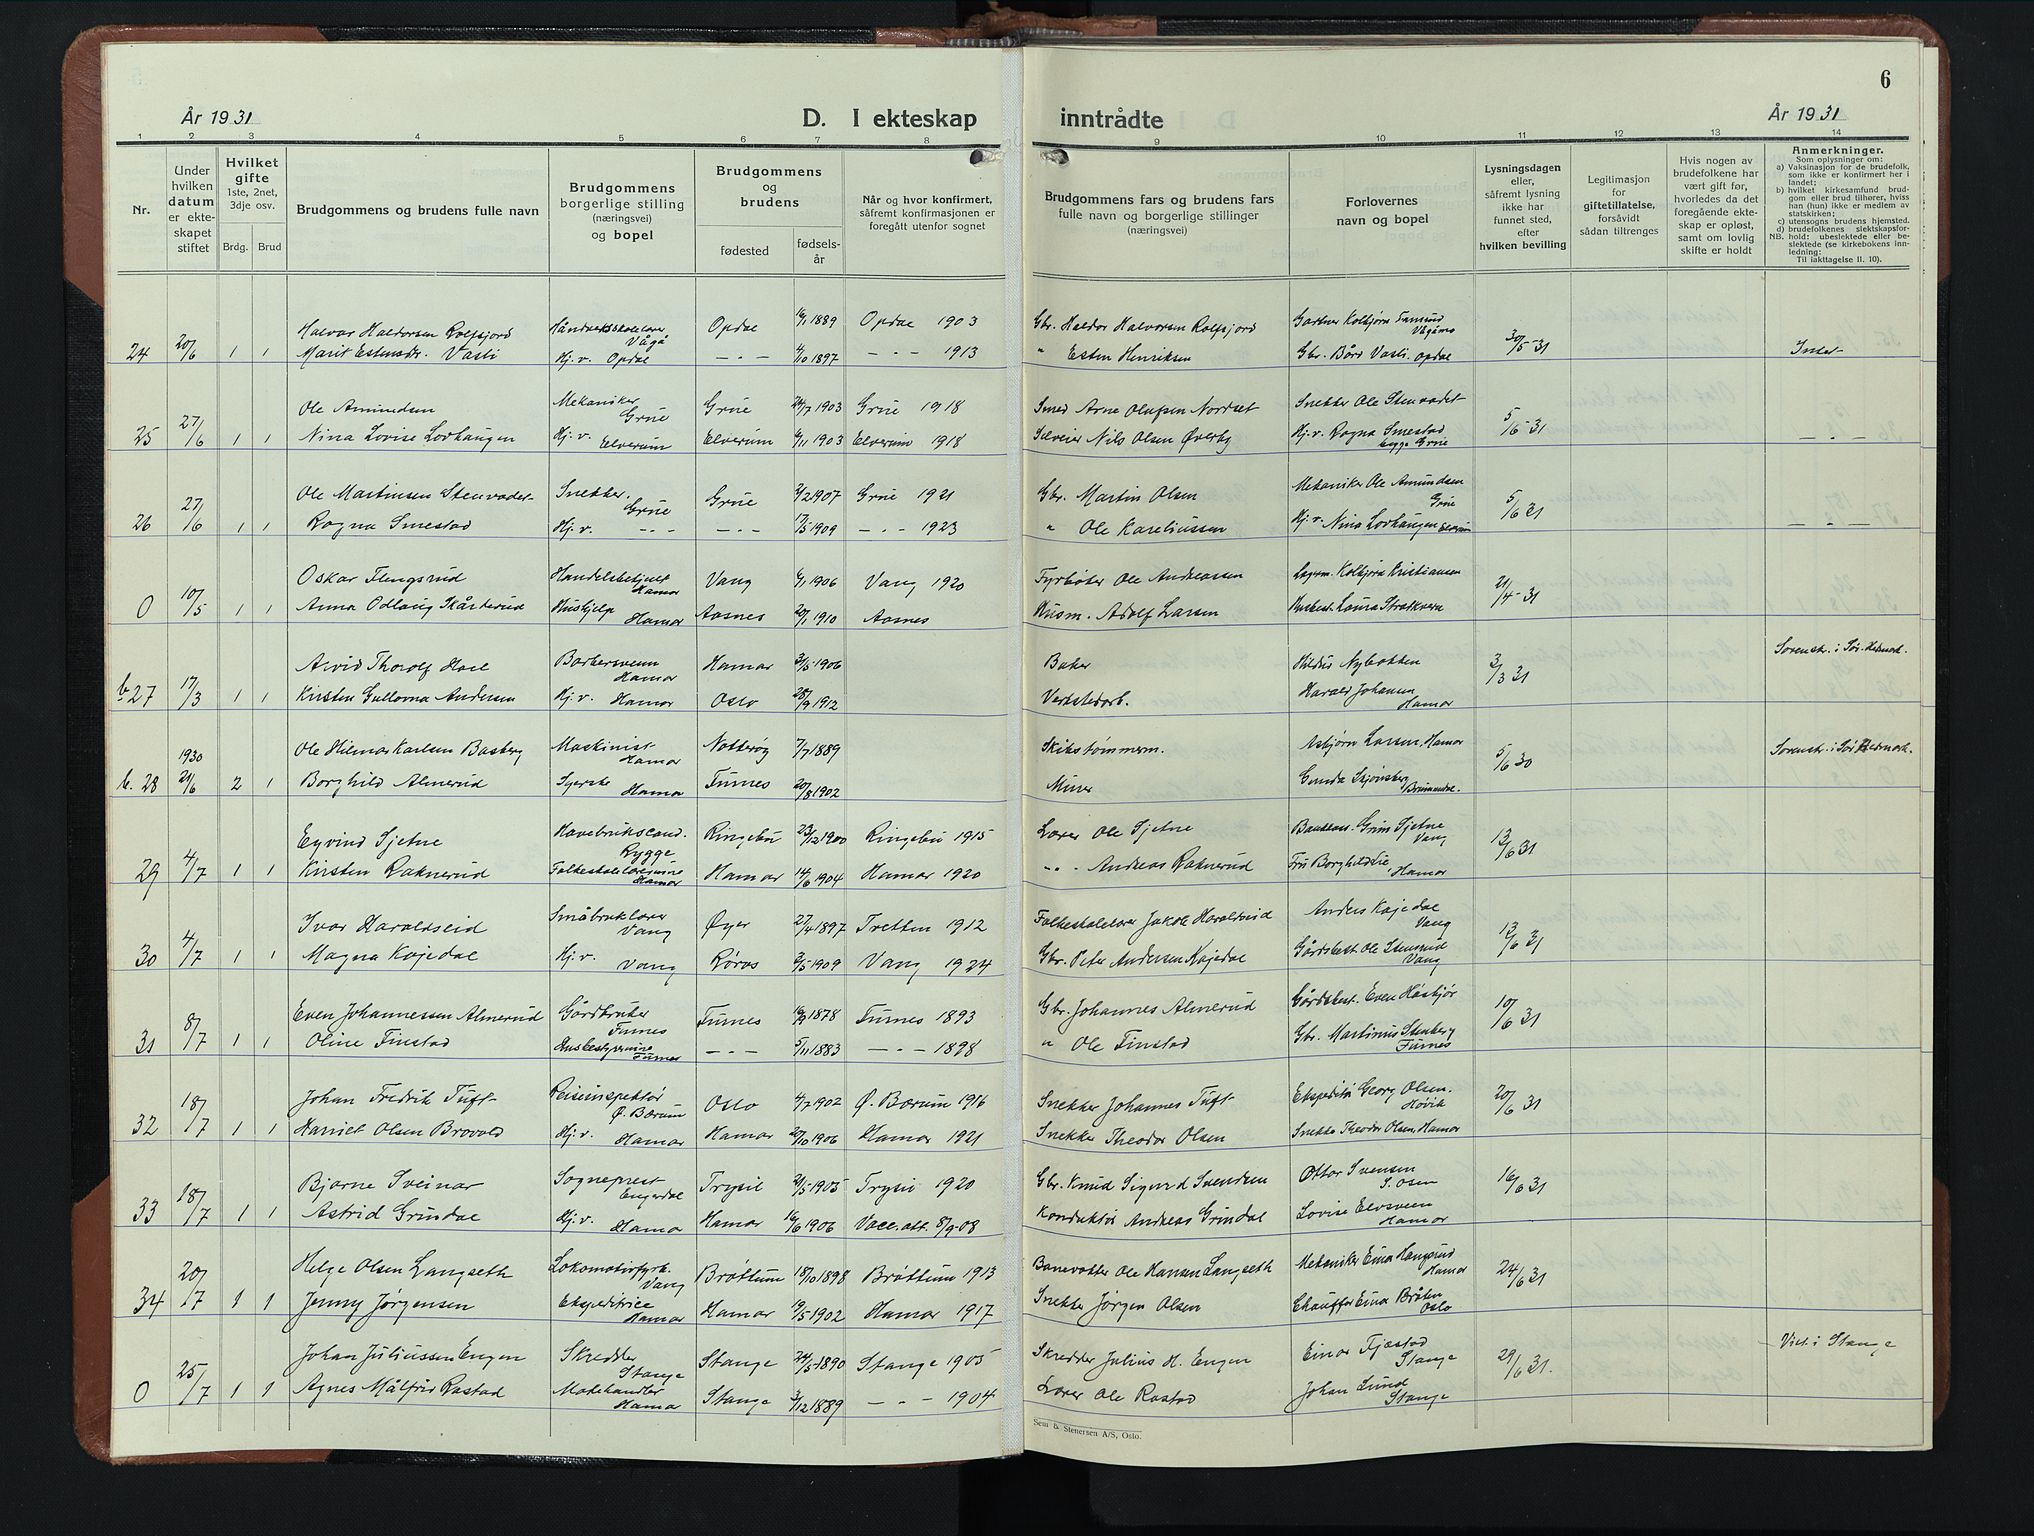 6
År 1931
D. I ekteskap inntrådte
År 1931
1 2 3 4 5 6 7 8 9 10 11 12 13 14
Nr.
Under hvilken datum er ekteskapet stiftet
Hvilket gifte
1ste, 2net, 3dje osv.
Brdg. Brud
Brudgommens og brudens fulle navn
Brudgommens borgerlige stilling (næringsvei) og bopel
Brudgommens og brudens
fødested
fødsels-år
Når og hvor konfirmert, såfremt konfirmasjonen er foregått utenfor sognet
Brudgommens fars og brudens fars fulle navn og borgerlige stillinger (næringsvei)
Forlovernes navn og bopel
Lysningsdagen eller, såfremt lysning ikke har funnet sted, efter hvilken bevilling
Legitimasjon for giftetillatelse, forsåvidt sådan tiltrenges
Hvis nogen av brudefolkene har vært gift før, hvorledes da det foregående ekteskap er opløst, samt om lovlig skifte er holdt
Anmerkninger.
Som oplysninger om:
a) Vaksinasjon for de brudefolk, som ikke er konfirmert her i landet;
b) hvilket kirkesamfund brudgom eller brud tilhører, hviss han (hun) ikke er medlem av statskirken;
c) utensogns brudens hjemsted.
d) brudefolkenes slektskapsforhold: ubeslektede eller beslektede (se kirkebokens innledning:
NB.
Til iakttagelse II. 10).
Halvar Haldorsen Rolfsjord Håndverksskolelærer Vågå Opdal 6/1 1889 Opdal 1903 Gbr. Haldor Halvorsen Rolfsjord Gartner Kolbjørn Vågåmo
24 20/6 1 1 Marit Estensdr. Vasli Hj.v. Opdal — " — 4/10 1897 — " — 1913 " Esten Henriksen Gbr. Bård Vasli, Opdal 30/5-31
Ole Amundsen Mekaniker Grue Grue 24/7 1903 Grue 1918 Smed Arne Olufsen Nordset Snekker Ole Stenvadet
25 27/6 1 1 Nina Lovise Lovhaugen Hj.v. Elverum Elverum 6/11 1903 Elverum 1918 Nils Olsen Øverby Hj.v. Ragna Smestad Grue 5/6-31 — " —
Ole Martinsen Stenvadet Snekker. Grue Grue 2/2 1907 Grue 1921 Gbr. Martin Olsen Mekaniker Ole Amundsen Grue
26 27/6 1 1 Ragna Smestad Hj.v. — " — — " — 17/5 1909 — " — 1923 " Ole Kareliussen Hj.v. Nina Lovhaugen Elverum 5/6 31 — " —
Oskar Flengsrud Handelsbetjent Hamar Vang 6/1 1906 Vang 1920 Fyrbøter Ole Andreassen Lagerm. Kolbjørn Kristiansen
0 10/5 1 1 Anna Odlaug Skårderud Hushjelp Hamar Aasnes 20/1 1910 Aasnes Husm. Adolf Larsen 21/4-31
Arvid Thorolf Hoel Barbersvenn Hamar Hamar 3/5 1906 Baker Hildur Nybakken Sorenskr. i Sør-Hedmark.
b 27 17/3 1 1 Kirsten Gullovna Andersen Hj.v. Hamar Oslo 28/9 1912 Verkstedarb. Harald Johansen Hamar 3/3 31
1930 Ole Hilmar Karlsen Basberg Maskinist Hamar Nøtterøy 7/7 1889 Skibstømmerm. Asbjørn Larsen, Hamar Sorenskr. i Sør Hedmark.
b. 28 21/6 2 1 Borghild Almerud Syerske Hamar Furnes 20/8 1902 Murer Gunda Skjønsberg Brumunddal. 5/6 30
Eyvind Sjetne Havebrukscand. Rygge Ringebu 23/12 1900 Ringebu 1915 Lærer Ole Sjetne Grim Sjetne Vang
29 4/7 1 1 Kirsten Raknerud Folkeskolelærerinne Hamar Hamar 14/6 1904 Hamar 1920 " " Andreas Raknerud Fru Borghild Lie, Hamar 13/6 31
Ivar Haraldseid Småbruklærer Vang Øyer 27/4 1897 Tretten 1912 Folkeskolelærer Jakob Haraldseid Anders Kojedal Vang
30 4/7 1 1 Magna Kojedal Hj.v. Vang Røros 2/5 1909 Vang 1924 Gbr. Peter Andersen Kojedal Gårdsbest. Ole Stensrud Vang 13/6 31
Even Johannessen Almerud Gårdbruker Furnes Furnes 1878 Furnes 1893 Gbr. Johannes Almerud Gårdsbest. Even Høsbjør
31 8/7 1 1 Oline Finstad Husbestyrerinne Furnes — " — 5/11 1883 — " — 1898 " Ole Finstad Gbr. Martinus Stenberg Furnes 10/6 31
Johan Fredrik Tuft Reiseinspektør Ø. Bærum Oslo 4/7 1902 Ø. Bærum 1916 Snekker Johannes Tuft Ekspeditør Georg Olsen. Høvik
32 18/7 1 1 Harriet Olsen Brovold Hj.v. Hamar Hamar 27/10 1906 Hamar 1921 Snekker Theodor Olsen Snekker Theodor Olsen, Hamar 20/6 31
Bjarne Sveinar Sogneprest Engerdal Trysil 1905 Trysil 1920 Gbr. Knud Sigurd Svendsen Ottar Svensen S. Osen
33 18/7 1 1 Astrid Grindal Hj.v. Hamar Hamar 16/6 1906 Vacc. att. 8/9-08 Konduktør Andreas Grindal Lovise Elvsveen Hamar 16/6 31
Helge Olsen Langseth Lokomotivfyrb. Vang Brøttum 18/10 1898 Brøttum 1913 Banevokter Ole Hansen Langseth Mekaniker Einar Haugsrud Hamar
34 20/7 1 1 Jenny Jørgensen Ekspeditrice Hamar Hamar 19/5 1902 Hamar 1917 Snekker Jørgen Olsen Chauffør Einar Bråten Oslo 24/6 31
Johan Juliussen Engen Skredder Stange Stange 24/5 1890 Stange 1905 Skredder Julius H. Engen Einar Fjæstad Stange Viet i Stange
0 25/7 1 1 Agnes Målfrid Rostad Motehandler Hamar Stange 3/12 1889 — " — 1904 Lærer Ole Rostad Johan Lund Stange 29/6 31.
Sem & Stenersen A/S, Oslo.